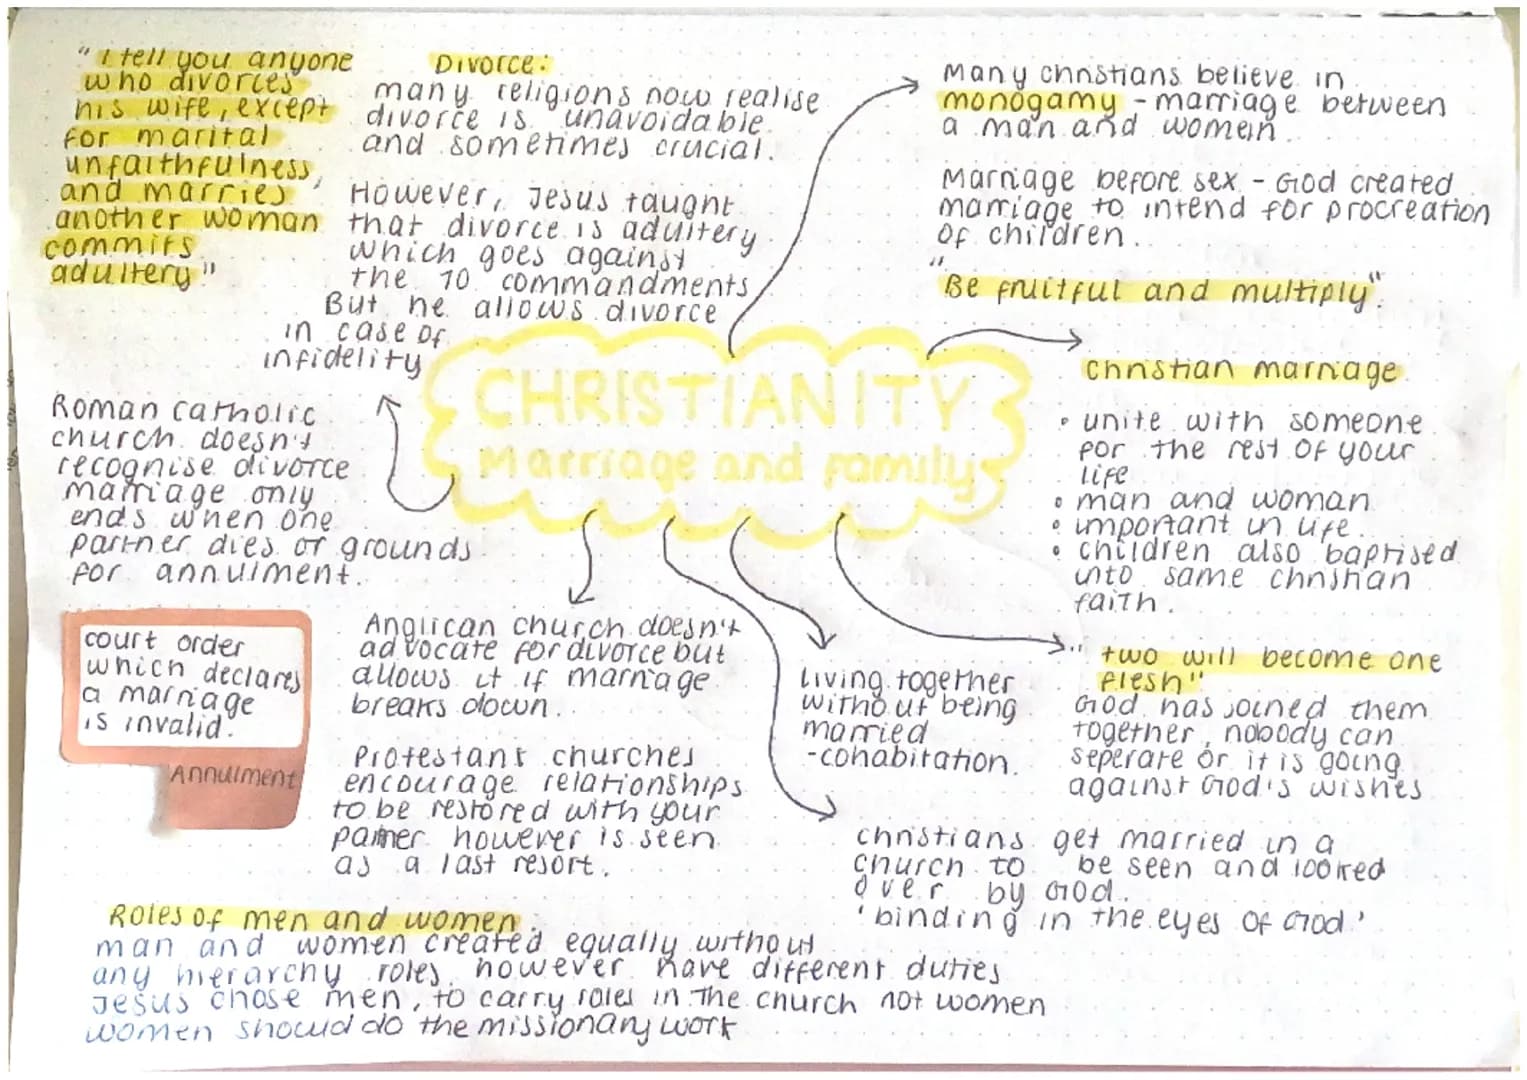 CHRISTIANITY
Marriage and family
"I tell you anyone
who divorces
his wife, except
for marital
unfaithfulness,
and marries
another woman
commits
adultery"
Divorce:
many religions now realise
divorce is unavoidable
and sometimes crucial.
However, Jesus taught
that divorce is adultery
which goes against
the 10 commandments
But he allows divorce
in case of
infidelity
Many christians believe in
monogamy - marriage between
a man and women.
Marriage before sex - God created
marriage to intend for procreation
of children.
"Be fruitful and multiply".
christian marriage
• unite with someone
for the rest of your
life
• man and woman
• important in life.
• children also baptised
into same christian
faith.
Roman catholic
church doesn't
recognise divorce
marriage only
ends when one
partner dies or grounds
for annulment.
court order
which declares
a marriage
is invalid.
Annulment
Anglican church doesn't
advocate for divorce but
allows it if marriage
breaks down.
Protestant churches
encourage relationships
to be restored with your
partner however is seen
as a last resort.
living together
without being
married
-cohabitation.
"two will become one
flesh"
God has joined them
together, nobody can
seperate or it is going
against God's wishes
christians get married in a
church to be seen and looked
over by God.
'binding in the eyes of God'
Roles of men and women:
man and women created equally without
any hierarchy roles, however have different duties
Jesus chose men, to carry roles in the church not women
women should do the missionary work